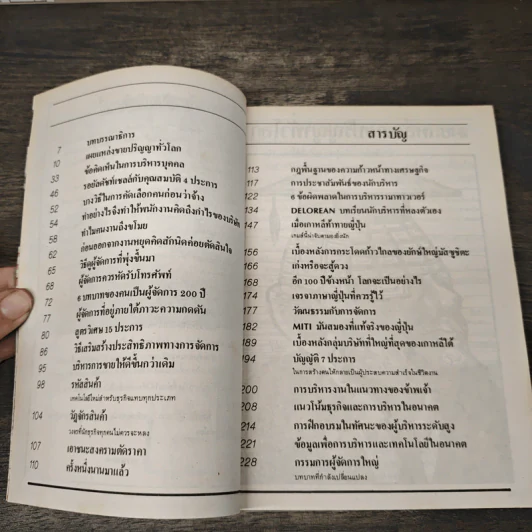 บทบรรณาธิการ
7 เผยแหล่งขายปริญญาทั่วโลก
10 ข้อคิดเห็นในการบริหารบุคคล
33 รอยัลดัทช์เชลล์กับคุณสมบัติ 4 ประการ
46 บางวิธีในการคัดเลือกคนก่อนว่าจ้าง
52 ทำอย่างไรจึงทำให้พนักงานคิดถึงกำไรของบริษัท
54 ทำไมคนงานถึงขโมย
62 ก่อนออกจากงานหยุดคิดสักนิดค่อยตัดสินใจ
65 วิธีดูผู้จัดการที่พุ่งขึ้นมา
68 ผู้จัดการควรหัดรับโทรศัพท์
72 6 บทบาทของคนเป็นผู้จัดการ 200 ปี
77 ผู้จัดการที่อยู่ภายใต้ภาวะความกดดัน
80 สูตรวิเศษ 15 ประการ
86 วิธีเสริมสร้างประสิทธิภาพทางการจัดการ
95 บริหารการขายให้ดีขึ้นกว่าเดิม
98 รหัสสินค้า
เทคโนโลยีใหม่สำหรับธุรกิจแทบทุกประเภท
104 วัฏจักรสินค้า
วงจรที่นักธุรกิจทุกคนไม่ควรจะหลง
107 เอาชนะสงครามตัดราคา
110 ครั้งหนึ่งนานมาแล้ว
สารบัญ
113 กฎพื้นฐานของความก้าวหน้าทางเศรษฐกิจ
117 การประชาสัมพันธ์ของนักบริหาร
122 6 ข้อผิดพลาดในการบริหารรามาทาวเวอร์
134 DELOREAN บทเรียนนักบริหารที่หลงตัวเอง
147 เมื่อเกาหลีท้าทายญี่ปุ่น
เกมส์นี้น่าจับตามองยิ่งนัก
156 เบื้องหลังการกระโดดก้าวไกลของยักษ์ใหญ่มัตซูชิตะ
166 เก่งหรือจะสู้ดวง
168 อีก 100 ปีข้างหน้า โลกจะเป็นอย่างไร
174 เจรจาภาษาญี่ปุ่นที่ควรรู้ไว้
177 วัฒนธรรมกับการจัดการ
182 MITI มันสมองที่แท้จริงของญี่ปุ่น
189 เบื้องหลังกลุ่มบริษัทที่ใหญ่ที่สุดของเกาหลีใต้
194 บัญญัติ 7 ประการ
ในการสร้างตนให้กลายเป็นผู้ประสบความสำเร็จในชีวิตงาน
200 การบริหารงานในแนวทางของข้าพเจ้า
208 แนวโน้มธุรกิจและการบริหารในอนาคต
214 การฝึกอบรมในทัศนะของผู้บริหารระดับสูง
221 ข้อมูลเพื่อการบริหารและเทคโนโลยีในอนาคต
228 กรรมการผู้จัดการใหญ่
บทบาทที่กำลังเปลี่ยนแปลง